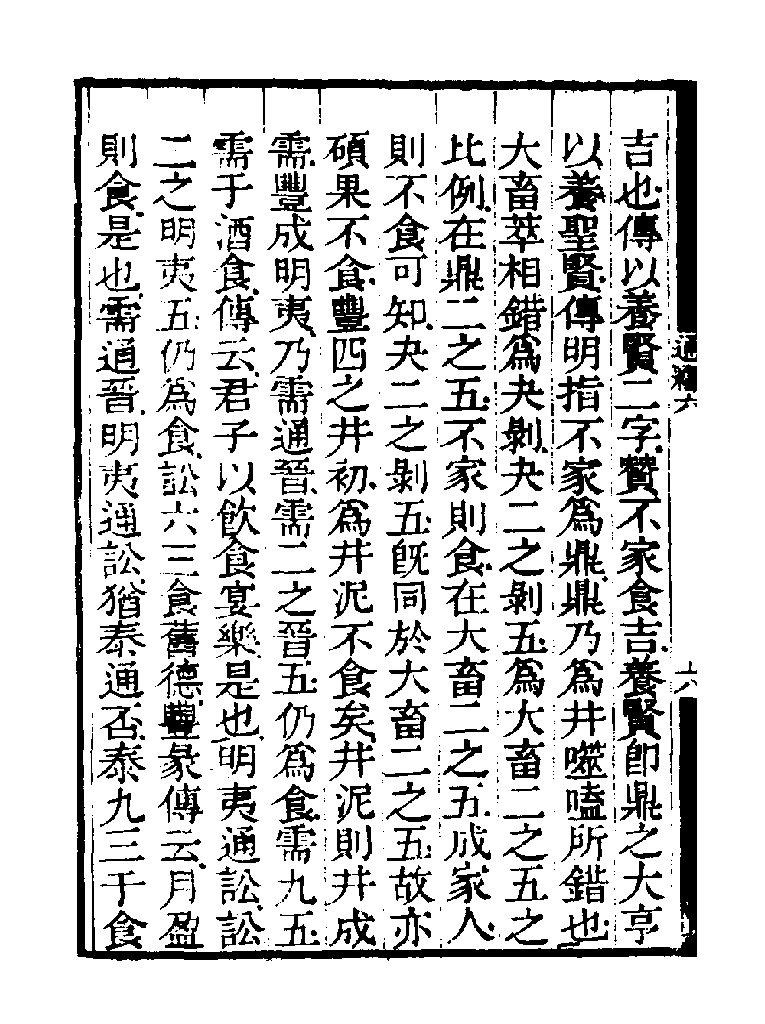 吉也傳以養賢二字贊不家食吉養賢卽鼎之大亨
以養聖賢傳明指不家爲鼎鼎乃爲井噬嗑所錯也
大畜萃相錯爲夬剝夬二之剝五爲大畜二之五之
比例在鼎二之五不家則食在大畜二之五成家人
則不食可知夬二之剝五旣同於大畜二之五故亦
碩果不食豐四之井初爲井泥不食矣井泥則井成
需豐成明夷乃需通晉需二之晉五仍爲食需九五
需于酒食傳云君子以飮食宴樂是也明夷通訟訟
二之明夷五仍爲食訟六三食舊德豐彖傳云月盈
則食是也需通晉明夷通訟猶泰通否泰九三于食
通釋六
六